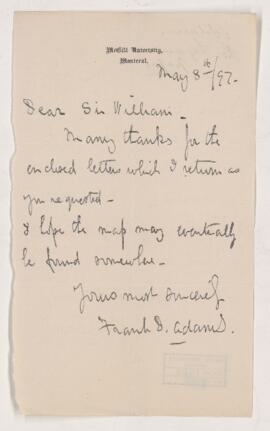 McGill University,
Montreal.
May 8th/97.
Dear Sir William.
Many thanks for the
enclosed letters which I return as
you requested.
I hope the map may eventually
be found somewhere.
Yours most sincerely
Frank D. Adams.